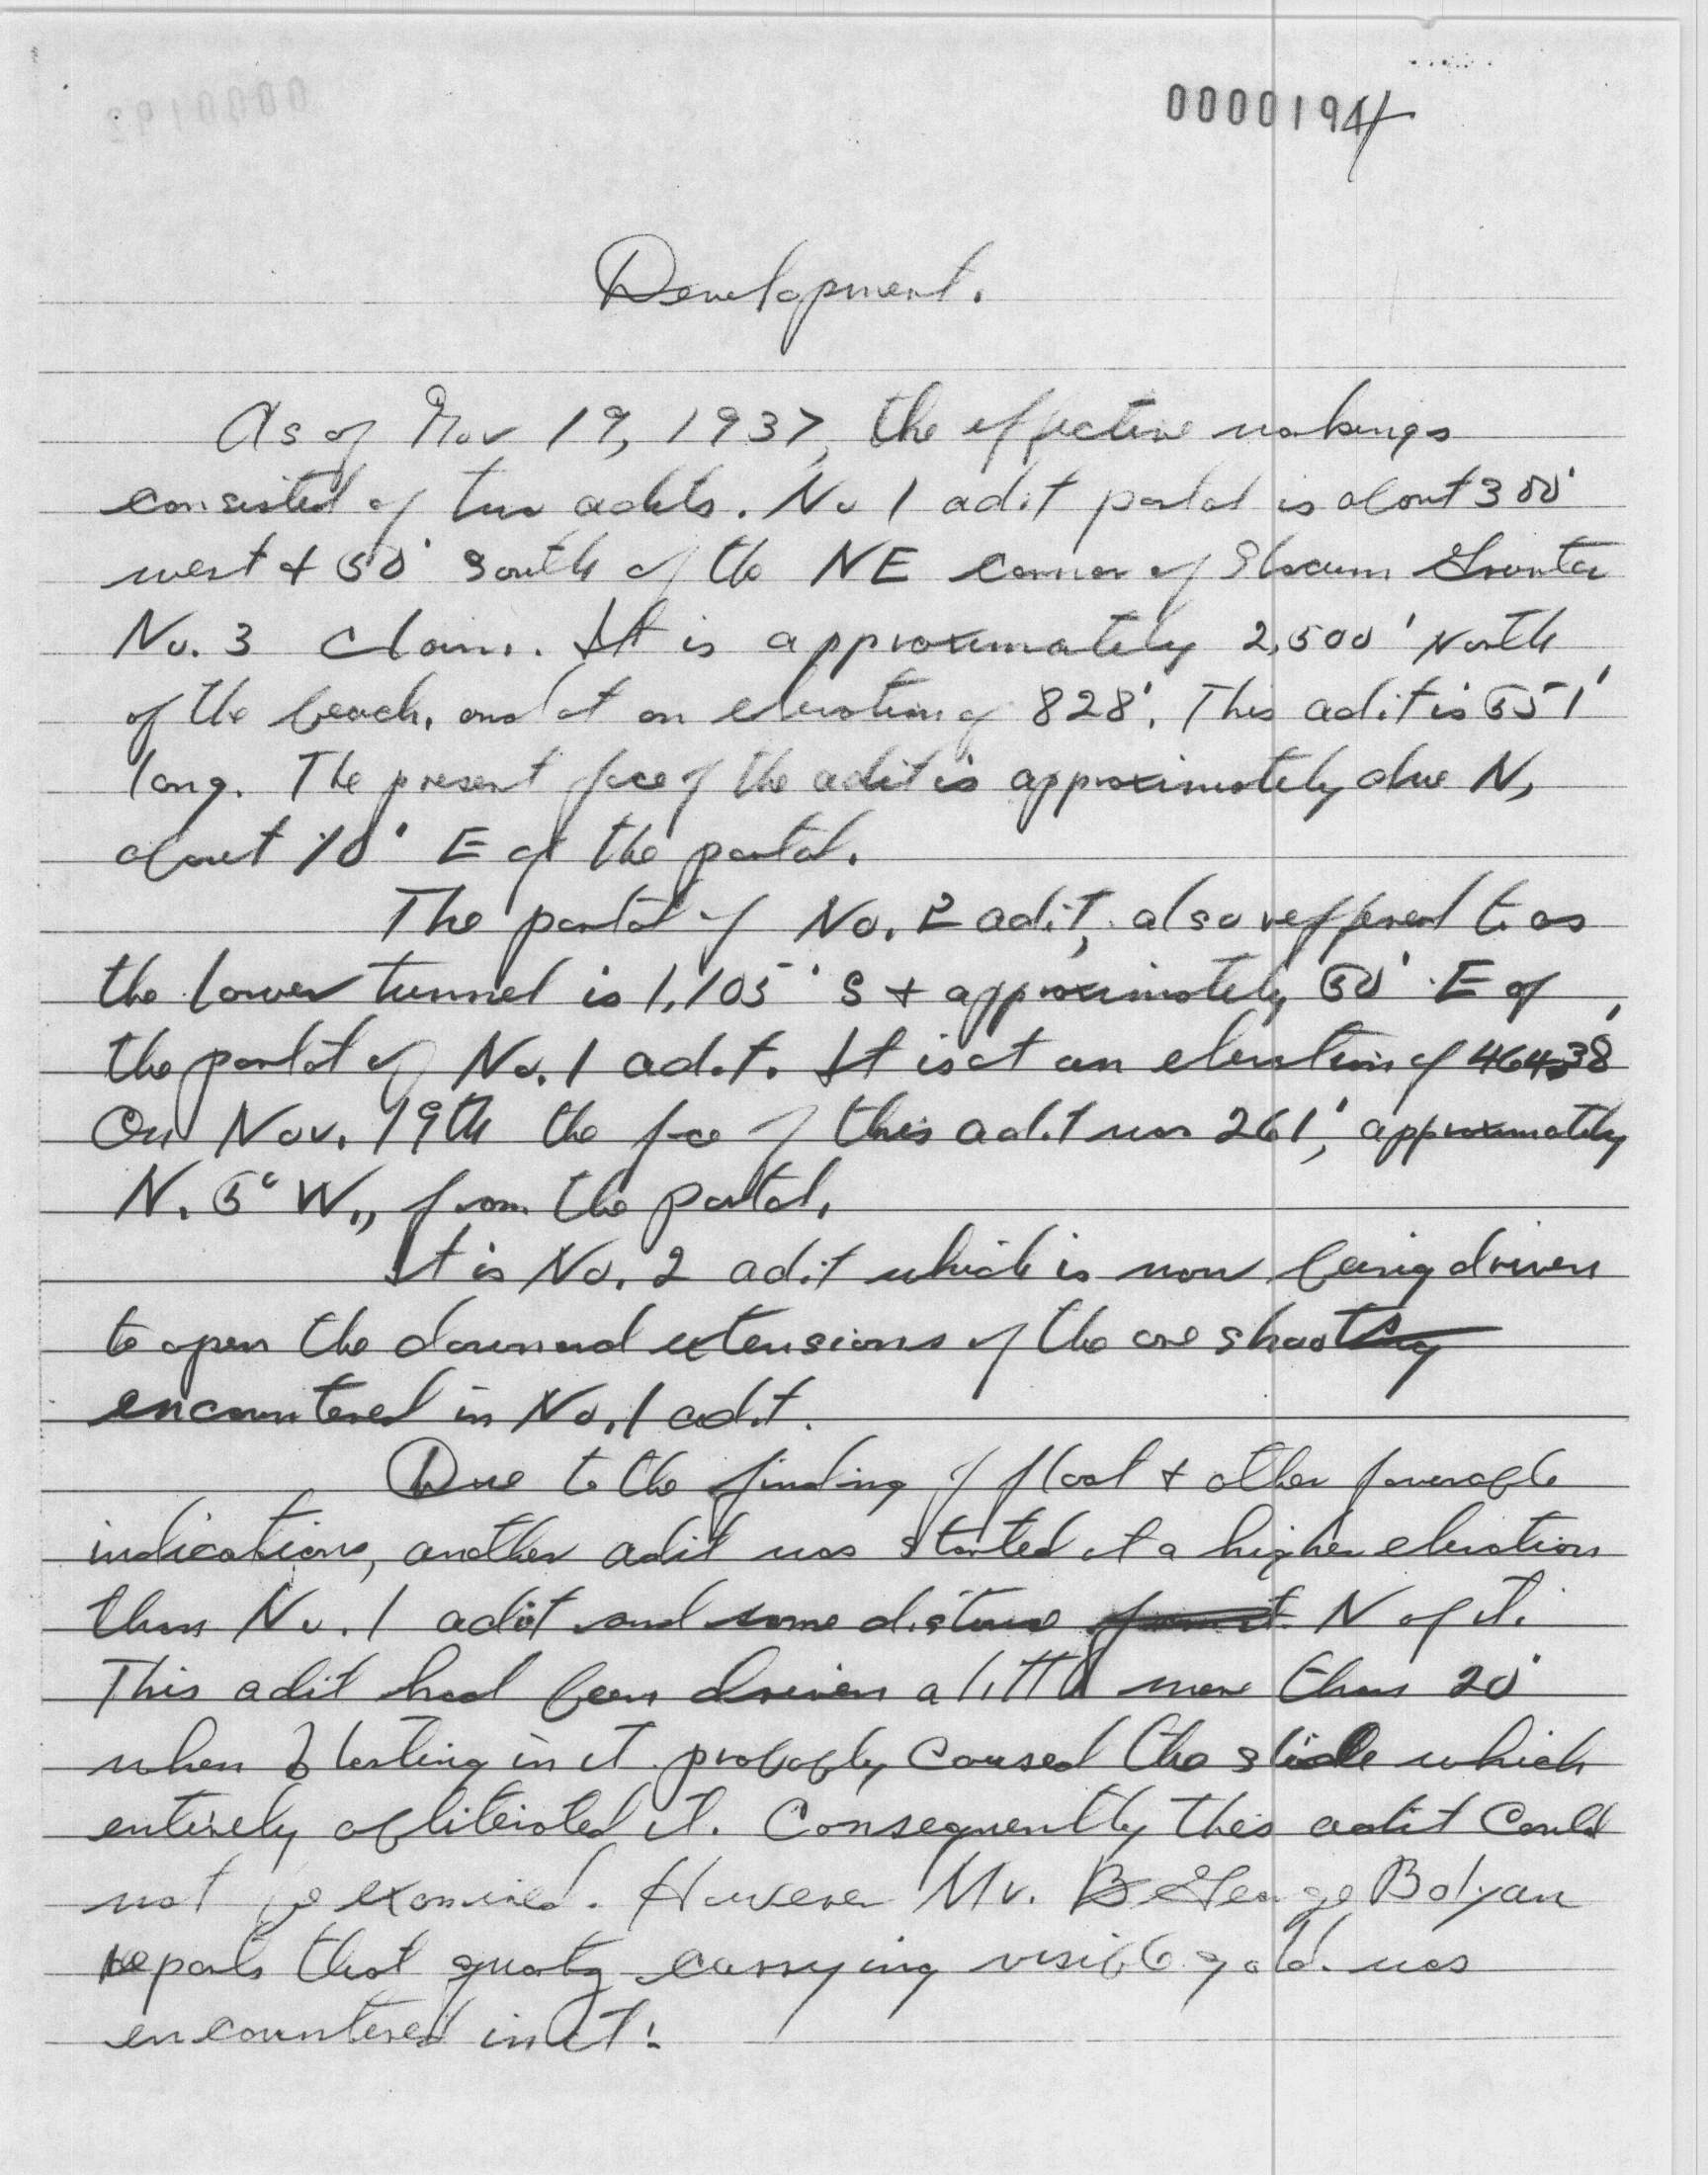 0000194
Development.
As of Nov 19, 1937, the effective workings
consisted of two adits. No 1 adit portal is about 300'
west + 50' South of the NE corner of
No. 3 Claim. It is approximately 2,500' North
of the beach, and at an elevation of 828'. This adit is 551'
long. The present face of the adit is approximately due N,
about 10' E of the portal.
The portal of No. 2 adit, also reffered to as
the lower tunnel is 1,105' S + approximately 50' E of
the portal of No. 1 adit. It is at an elevation of 464.38'
On Nov. 19th the face of this adit was 261', approximately
N. 5° W., from the portal.
It is No. 2 adit which is now being driven
to open the downward extensions of the ore shoot
encountered in No. 1 adit.
Due to the finding of float + other favorable
indications, another adit was started at a higher elevation
than No. 1 adit and some distance N of it.
This adit had been driven a little more than 20'
when blasting in it probably caused the slide which
entirely obliterated it. Consequently this adit could
not be examined. However Mr. George Bolyan
reports that quartz carrying visible gold was
encountered in it.